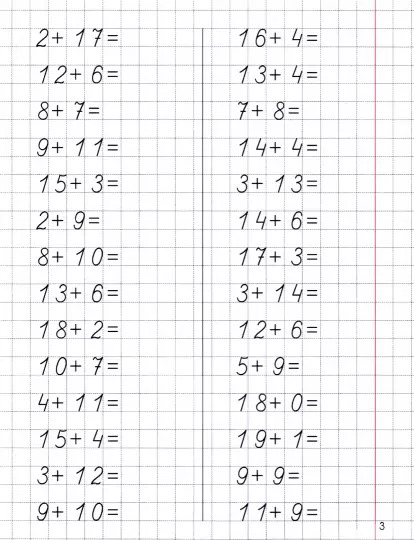 2+ 17=
12+ 6=
8+ 7=
9+ 11=
15+ 3=
2+ 9=
8+ 10=
13+ 6=
18+ 2=
10+ 7=
4+ 11=
15+ 4=
3+ 12=
9+ 10=
16+ 4=
13+ 4=
7+ 8=
14+ 4=
3+ 13=
14+ 6=
17+ 3=
3+ 14=
12+ 6=
5+ 9=
18+ 0=
19+ 1=
9+ 9=
11+ 9=
3